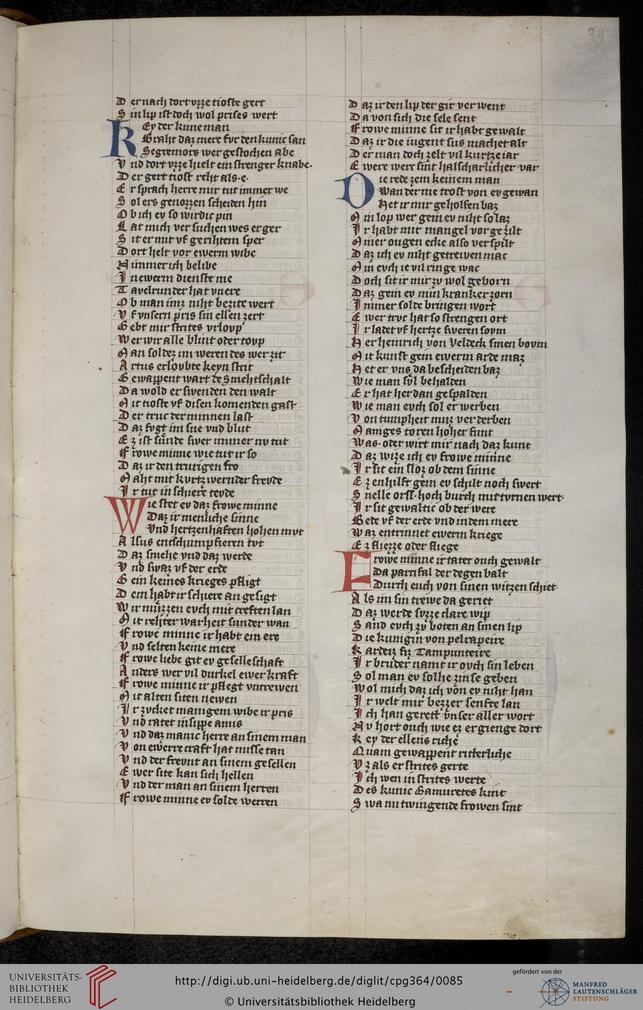 34
D er nach dort vzze tioste gert
S in lip ist doch wol prises wert
K Ey der kune man
Braht daz mere fvr den kunic san
Segremors wer gestochen abe
V nd dort vzze hielt ein strenger knabe
D er gert tiost reht als e
E r sprach herre mir tut immer we
S ol ers genozzen scheiden hin
O b ich ev so wirdic pin
L at mich versuchen wes er ger
S it er mit vf gerihtem sper
D ort helt vor ewerm wibe
N immer ich belibe
I n ewerm dienste me
T avelrunder hat vnere
O b man imz niht bezite wert
V f vnsern pris sin ellen zert
G ebt mir strites vrloup
W er wir alle blint oder toup
M an soldez im weren des wer zit
A rtus erloubte keyn strit
G ewappent wart de Smehtschalt
D a wold er swenden den walt
M it tioste vf disen komenden gast
D er truc der minnen last
D az fvgt im sne vnd blut
E z ist sunde swer immer nv tut
F rowe minne wie tut ir so
D az ir den trurigen fro
M aht mit kvrtz wernder frevde
I r tut in schiere tevde
W ie stet ev daz frowe minne
Daz ir menliche sinne
Vnd hertzenhaften hohen mvt
A lsus entschumpfieren tvt
D az smehe vnd daz werde
V nd swaz vf der erde
G ein keines krieges pfligt
D em habt ir schiere an gesigt
W ir mvzzen evch mit creften lan
M it rehter warheit sunder wan
F rowe minne ir habt ein ere
V nd selten keine mere
F rowe liebe git ev geselleschaft
A nders wer vil durkel ewer kraft
F rowe minne ir pflegt vntrewen
M it alten siten newen
I r zvcket manigem wibe ir pris
V nd ratet in sippe amis
V nd daz manic herre an sinem man
V on ewerre craft hat misse tan
V nd der frevnt an sinem gesellen
E wer site kan sich hellen
V nd der man an sinem herren
F rowe minne ev solde werren
D az ir den lip der gir verwent
D a von sich die sele sent
F rowe minne sit ir habt gewalt
D az ir die iugent sus machet alt
D er man doch zelt vil kurtze iar
E were werc sint halscharlicher var
D ie rede zem keinem man
Wan der nie trost von ev gewan
Het ir mir geholfen baz
M in lop wer gein ev niht so laz
I r habt mir mangel vor gezilt
M iner ougen ecke also verspilt
D az ich ev niht getrewen mac
M in evch ie vil ringe wac
D och sit ir mir zv wol geborn
D az gein ev min kranker zorn
I mmer solde bringen wort
E wer trvc hat so strengen ort
I r ladet vf hertze sweren sovm
H er heinrich von Veldeck sinen bovm
M it kunst gein ewerm arde maz
H et er vns da bescheiden baz
W ie man svl behalden
E r hat her dan gespalden
W ie man evch sol erwerben
V on tumpheit muz verderben
M aniges toren hoher funt
W as oder wirt mir nach daz kunt
D az wize ich ev frowe minne
I r sit ein sloz ob dem sinne
E z enhilft gein ev schilt noch swert
S nelle orss hoch burch mit turnen wert
I r sit gewaltic ob der were
B ede vf der erde vnd in dem mere
W az entrinnet ewerm kriege
E z fliezze oder fliege
F rowe minne ir tatet ouch gewalt
Da parcifal der degen balt
Durch euch von sinen witzen schiet
A ls im sin trewe da geriet
D az werde svzze clare wip
S and evch zv boten an sinen lip
D ie kunigin von pelrapeire
K ardeiz fiz Tampunteire
I r bruder namt ir ouch sin leben
S ol man ev solhe zinse geben
W ol mich daz ich von ev niht han
I r welt mir bezzer senfte lan
I ch han gerett vnser aller wort
N v hort ouch wie ez ergienge dort
K ey der ellens riche
Q uam gewappent ritterliche
V z als er strites gerte
I ch wen in strites werte
D es kunic Gamuretes kint
S wa nu twingende frowen sint
UNIVERSITÄTS-
BIBLIOTHEK
HEIDELBERG
http://digi.ub.uni-heidelberg.de/diglit/cpg364/0085
© Universitätsbibliothek Heidelberg
gefördert von der
MANFRED
LAUTENSCHLÄGER
STIFTUNG